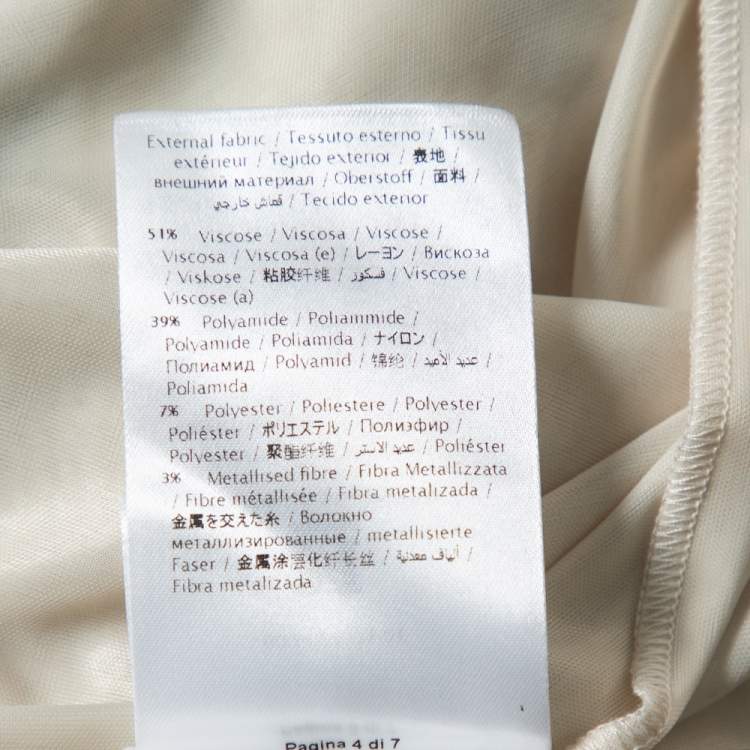 External fabric / Tessuto esterno / Tissu
extérieur / Tejido exterior / 表地 /
внешний материал / Oberstoff / 面料 /
قماش خارجي / Tecido exterior
51% Viscose / Viscosa / Viscose /
Viscosa / Viscosa (e) / レーヨン / Вискоза
/ Viskose / 粘胶纤维 / فسكوز / Viscose /
Viscose (a)
39% Polyamide / Poliammide /
Polyamide / Poliamida / ナイロン /
Полиамид / Polyamid / 锦纶 / عديد الأميد /
Poliamida
7% Polyester / Poliestere / Polyester /
Poliéster / ポリエステル / Полиэфир /
Polyester / 聚酯纤维 / عديد الاستر / Poliéster
3% Metallised fibre / Fibra Metallizzata
/ Fibre métallisée / Fibra metalizada /
金属を交えた糸 / Волокно
металлизированные / metallisierte
Faser / 金属涂层化纤长丝 / ألياف معدنية /
Fibra metalizada
Pagina 4 di 7